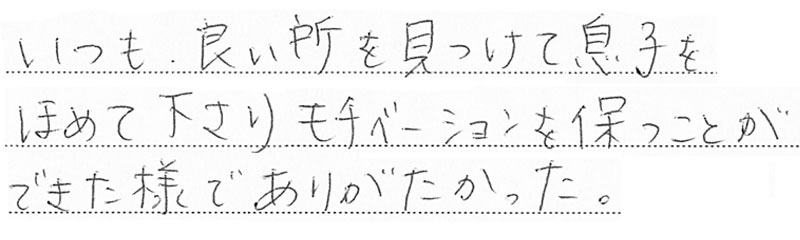 いつも、良い所を見つけて息子を
ほめて下さりモチベーションを保つことが
できた様でありがたかった。